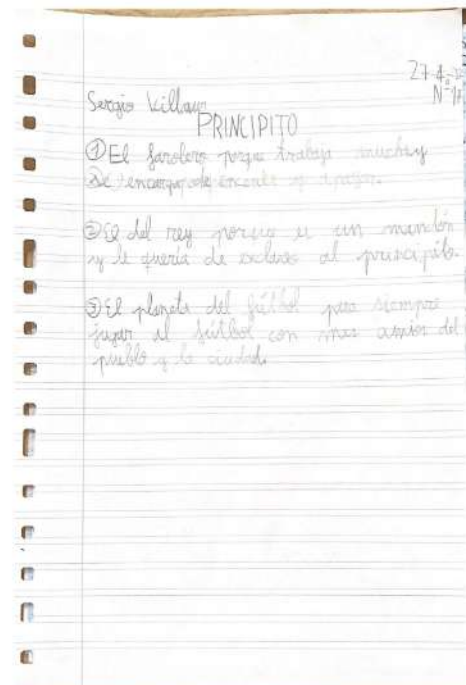 27-4-
Nº 17
Sergio Villaun
PRINCIPITO
① El farolero porque trabaja mucho y
se encarga de encender y apagar.
② El del rey porque es un mandón
y le quería de esclavo al principito.
③ El planeta del fútbol para siempre
jugar al fútbol con mis amios del
pueblo y la ciudad.